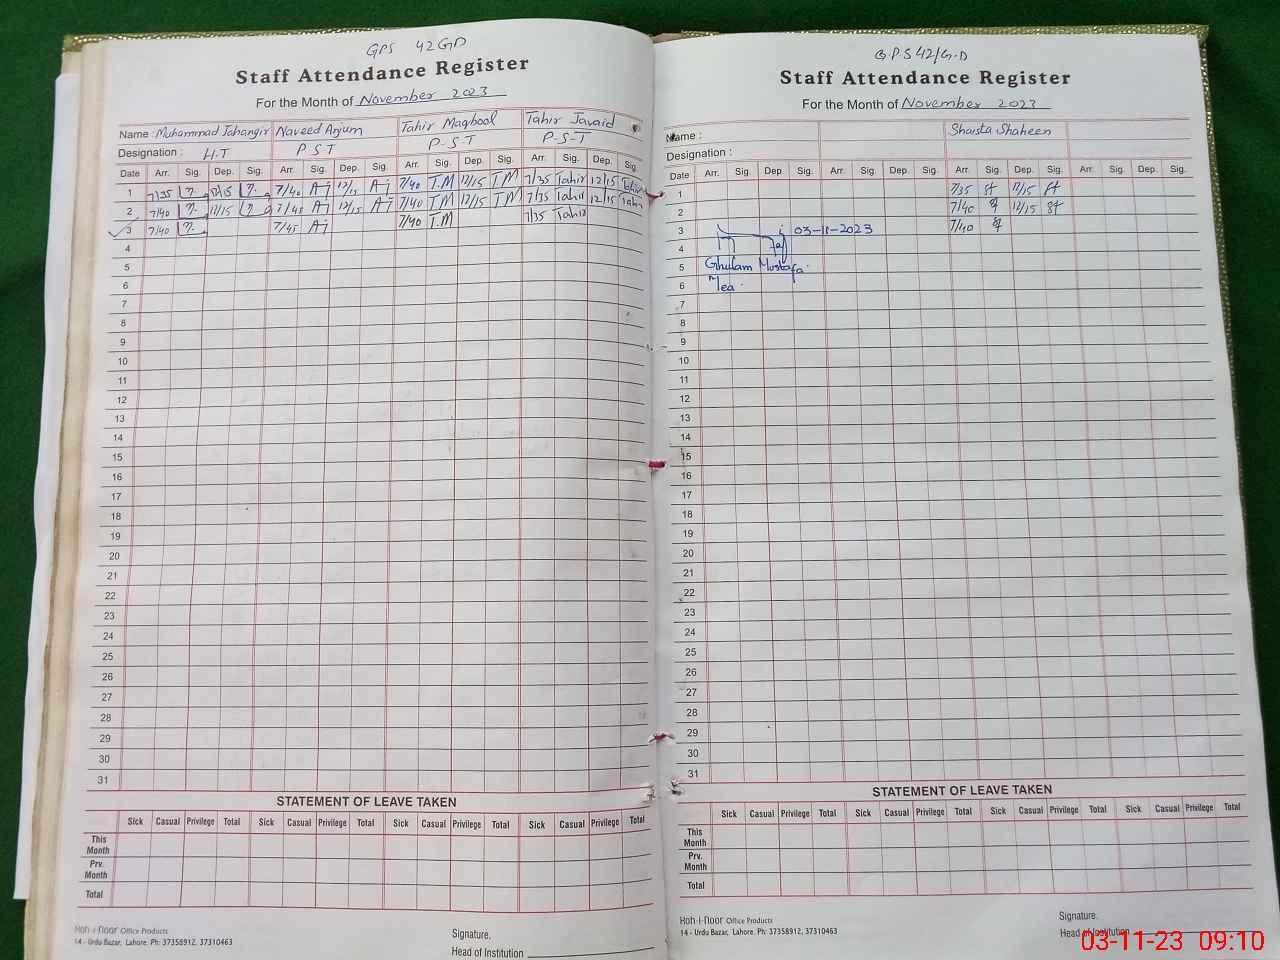 GPS 42GD
Staff Attendance Register
For the Month of November 2023
Name : Muhammad Jahangir Naveed Anjum Tahir Maqbool Tahir Javaid
Designation : H.T P S T P-S-T P-S-T
Date Arr. Sig. Dep. Sig. Arr. Sig. Dep. Sig. Arr. Sig. Dep. Sig. Arr. Sig. Dep. Sig.
1 7/35 12/15 7/40 Aj 12/15 Aj 7/40 T.M 12/15 T.M 7/35 Tahir 12/15 Tahir
2 7/40 12/15 7/45 Aj 12/15 Aj 7/40 T.M 12/15 T.M 7/35 Tahir 12/15 Tahir
3 7/40 7/45 Aj 7/40 T.M 7/35 Tahir
4
5
6
7
8
9
10
11
12
13
14
15
16
17
18
19
20
21
22
23
24
25
26
27
28
29
30
31
STATEMENT OF LEAVE TAKEN
Sick Casual Privilege Total Sick Casual Privilege Total Sick Casual Privilege Total Sick Casual Privilege Total
This Month
Prv. Month
Total
Koh-i-noor Office Products
14 - Urdu Bazar, Lahore. Ph: 37358912, 37310463
Signature.
Head of Institution
G.P.S 42/G.D
Staff Attendance Register
For the Month of November 2023
Name : Shaista Shaheen
Designation :
Date Arr. Sig. Dep. Sig. Arr. Sig. Dep. Sig. Arr. Sig. Dep. Sig. Arr. Sig. Dep. Sig.
1 7/35 12/15
2 7/40 12/15
3 03-11-2023 7/40
4
5 Ghulam Mustafa
6 Mea
7
8
9
10
11
12
13
14
15
16
17
18
19
20
21
22
23
24
25
26
27
28
29
30
31
STATEMENT OF LEAVE TAKEN
Sick Casual Privilege Total Sick Casual Privilege Total Sick Casual Privilege Total Sick Casual Privilege Total
This Month
Prv. Month
Total
Koh-i-noor Office Products
14 - Urdu Bazar, Lahore. Ph: 37358912, 37310463
Signature.
Head of Institution
03-11-23 09:10